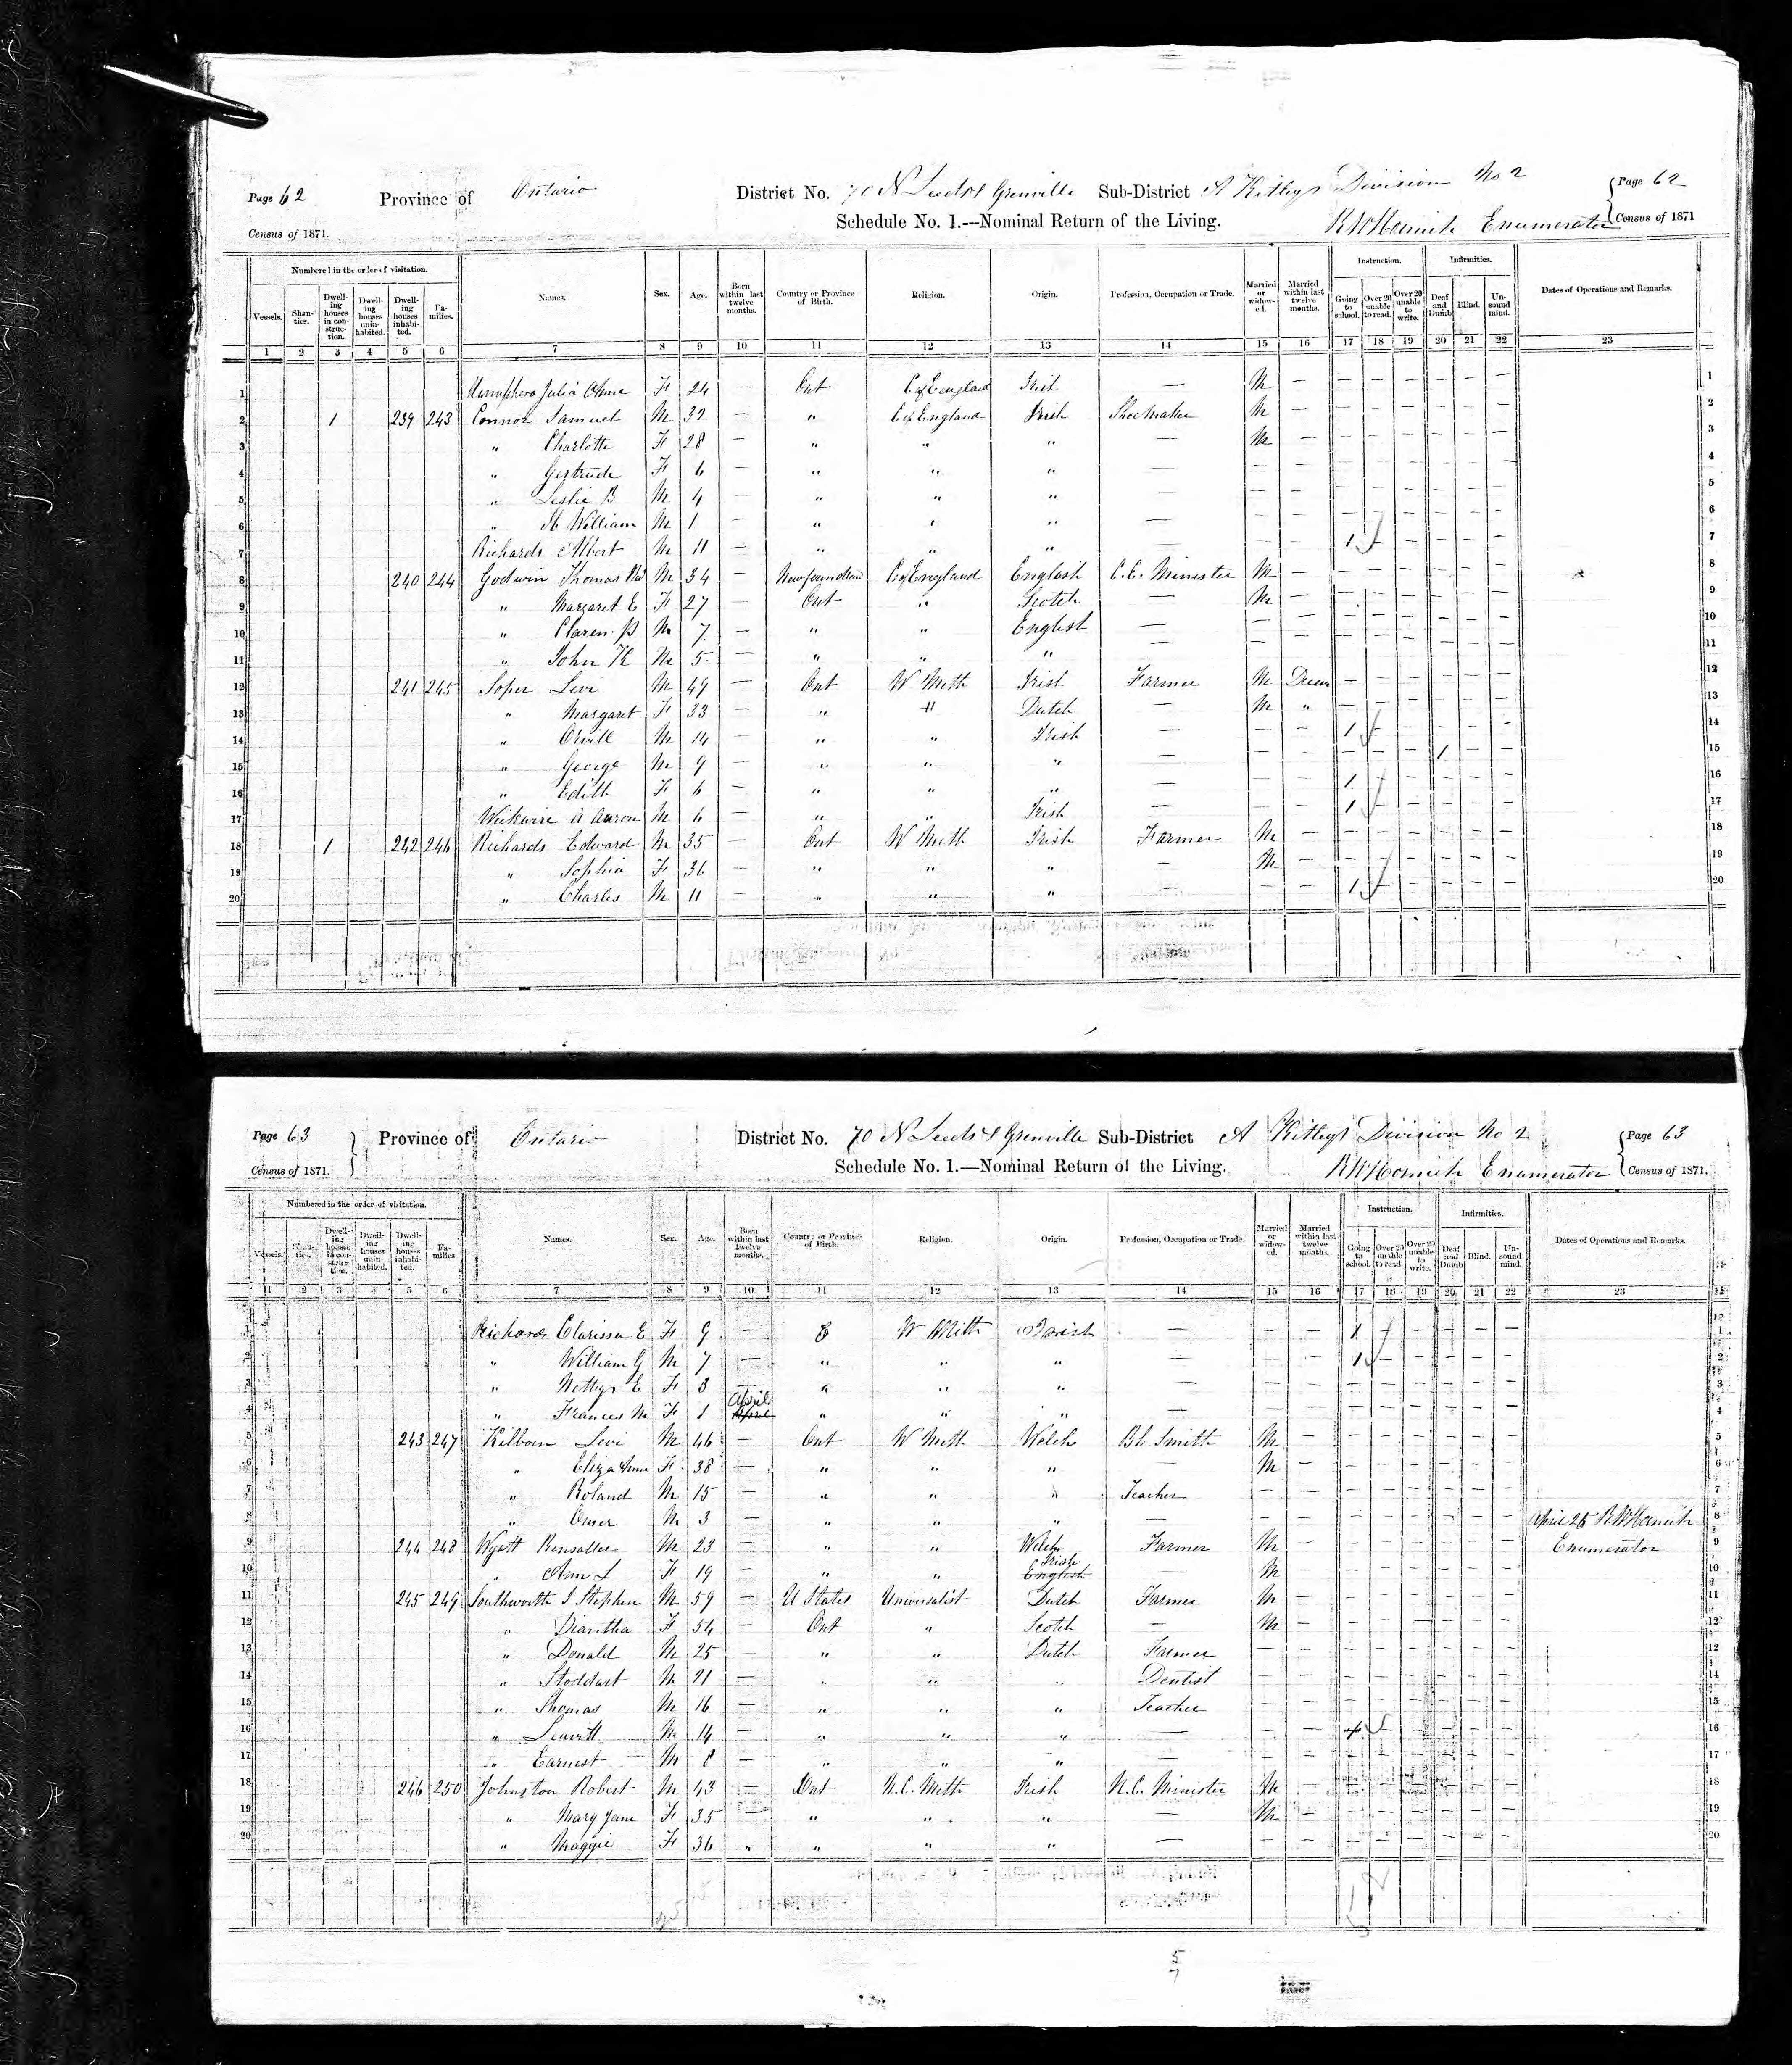 Page 62 Province of Ontario District No. 70 N Leeds & Grenville Sub-District A Kitley Division No 2 Page 62
Census of 1871. Schedule No. 1.—Nominal Return of the Living. Enumerator Census of 1871
Numbered in the order of visitation. Instruction. Infirmities.
Vessels. Shanties. Dwelling houses in construction. Dwelling houses uninhabited. Dwelling houses inhabited. Families. Names. Sex. Age. Born within last twelve months. Country or Province of Birth. Religion. Origin. Profession, Occupation or Trade. Married or widowed. Married within last twelve months. Going to school. Over 20 unable to read. Over 20 unable to write. Deaf and Dumb Blind. Unsound mind. Dates of Operations and Remarks.
1 2 3 4 5 6 7 8 9 10 11 12 13 14 15 16 17 18 19 20 21 22 23
1 Julia Anne F 24 — Ont C of England Irish — M — — — — — — — 1
2 1 239 243 Connor Samuel M 32 — " C of England Irish Shoemaker M — — — — — — — 2
3 " Charlotte F 28 — " " " — M — — — — — — — 3
4 " Gertrude F 6 — " " " — — — — — — — — — 4
5 " Leslie B M 4 — " " " — — — — — — — — — 5
6 " William M 1 — " " " — — — — — — — — — 6
7 Richards Albert M 11 — " " " — — — 1 — — — — — 7
8 240 244 Godwin Thomas M 34 — Newfoundlan C of England English C.E. Minister M — — — — — — — 8
9 " Margaret E F 27 — Ont " Scotch — M — — — — — — — 9
10 " Claren P M 7 — " " English — — — — — — — — — 10
11 " John M 5 — " " " — — — — — — — — — 11
12 241 245 Soper Levi M 49 — Ont W Meth Irish Farmer M Decem — — — — — — 12
13 " Margaret F 33 — " " Dutch — M " — — — — — — 13
14 " Orvill M 14 — " " Irish — — — 1 — — — — — 14
15 " George M 9 — " " " — — — — — — 1 — — 15
16 " Edith F 6 — " " " — — — 1 — — — — — 16
17 Wickwire A Aaron M 6 " " Irish — — — 1 — — — — — 17
18 1 242 246 Richards Edward M 35 — Ont W Meth Irish Farmer M — — — — — — — 18
19 " Sophia F 36 — " " " — M — — — — — — — 19
20 " Charles M 11 — " " " — — — 1 — — — — — 20
Page 63 Province of Ontario District No. 70 N Leeds & Grenville Sub-District A Kitley Division No 2 Page 63
Census of 1871. Schedule No. 1.—Nominal Return of the Living. Enumerator Census of 1871.
Numbered in the order of visitation. Instruction. Infirmities.
Vessels. Shanties. Dwelling houses in construction. Dwelling houses uninhabited. Dwelling houses inhabited. Families Names. Sex. Age. Born within last twelve months. Country or Province of Birth. Religion. Origin. Profession, Occupation or Trade. Married or widowed. Married within last twelve months. Going to school. Over 20 unable to read. Over 20 unable to write. Deaf and Dumb Blind. Unsound mind. Dates of Operations and Remarks.
1 2 3 4 5 6 7 8 9 10 11 12 13 14 15 16 17 18 19 20 21 22 23
1 Richards Clarissa E F 9 — W Meth Irish — — — 1 — — — — — 1
2 " William G M 7 — " " " — — — 1 — — — — — 2
3 " E F 3 — " " " — — — — — — — — — 3
4 " Frances M F 1 April " " " — — — — — — — — — 4
5 243 247 Kilborn Levi M 46 — Ont W Meth Welch Bl Smith M — — — — — — — 5
6 " Eliza Anne F 38 — " " " — M — — — — — — — 6
7 " Roland M 15 — " " " Teacher — — — — — — — — 7
8 " Omer M 3 — " " " — — — — — — — — — April 26 8
9 244 248 Wyatt Rensaller M 23 — " " Welch Farmer M — — — — — — — Enumerator 9
10 " Ann L F 19 — " " Irish English — M — — — — — — — 10
11 245 249 Southworth S Stephen M 59 — U States Universalist Dutch Farmer M — — — — — — — 11
12 " Diantha F 54 — Ont " Scotch — M — — — — — — — 12
13 " Donald M 25 — " " Dutch Farmer — — — — — — — — 12
14 " Stoddart M 21 — " " " Dentist — — — — — — — — 14
15 " Thomas M 16 — " " " Teacher — — — — — — — — 15
16 " Leavitt M 14 — " " " — — — — — — — — 16
17 " Earnest M 8 — " " " — — — — — — — — — 17
18 246 250 Johnston Robert M 43 — Ont N.C. Meth Irish N.C. Minister M — — — — — — — 18
19 " Mary Jane F 35 — " " " — M — — — — — — — 19
20 " Maggie F 36 " " " " — — — — — — — — — 20
5
7